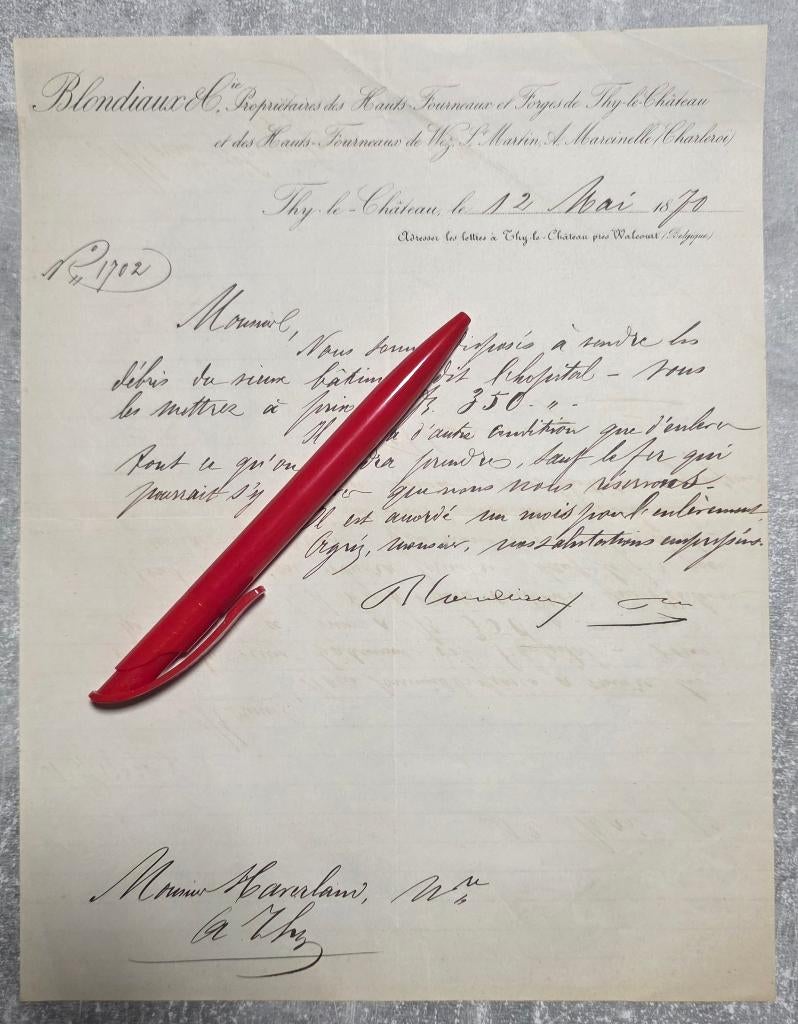 Blondiaux & Cie. Propriétaires des Hauts-Fourneaux et Forges de Thy-le-Château
et des Hauts-Fourneaux de Wez St Martin, A. Marcinelle (Charleroi)
Thy-le-Château, le 12 Mai 1870
Adresser les lettres à Thy-le-Château près Walcourt (Belgique)
No 1702
Monsieur,
Nous disposés à vendre les
débris du vieux dit l'hopital - Vous
les mettrez à fr. 350 „ -
Il d'autre condition que d'enlever
tout ce qu'on prendre, sauf le fer qui
pourrait s'y que nous nous réservons.
Il est accordé un mois pour l'enlèvement.
Agréez, monsieur, nos salutations empressées.
Blondiaux Cie
Monsieur Haverland, Nre
a Thy